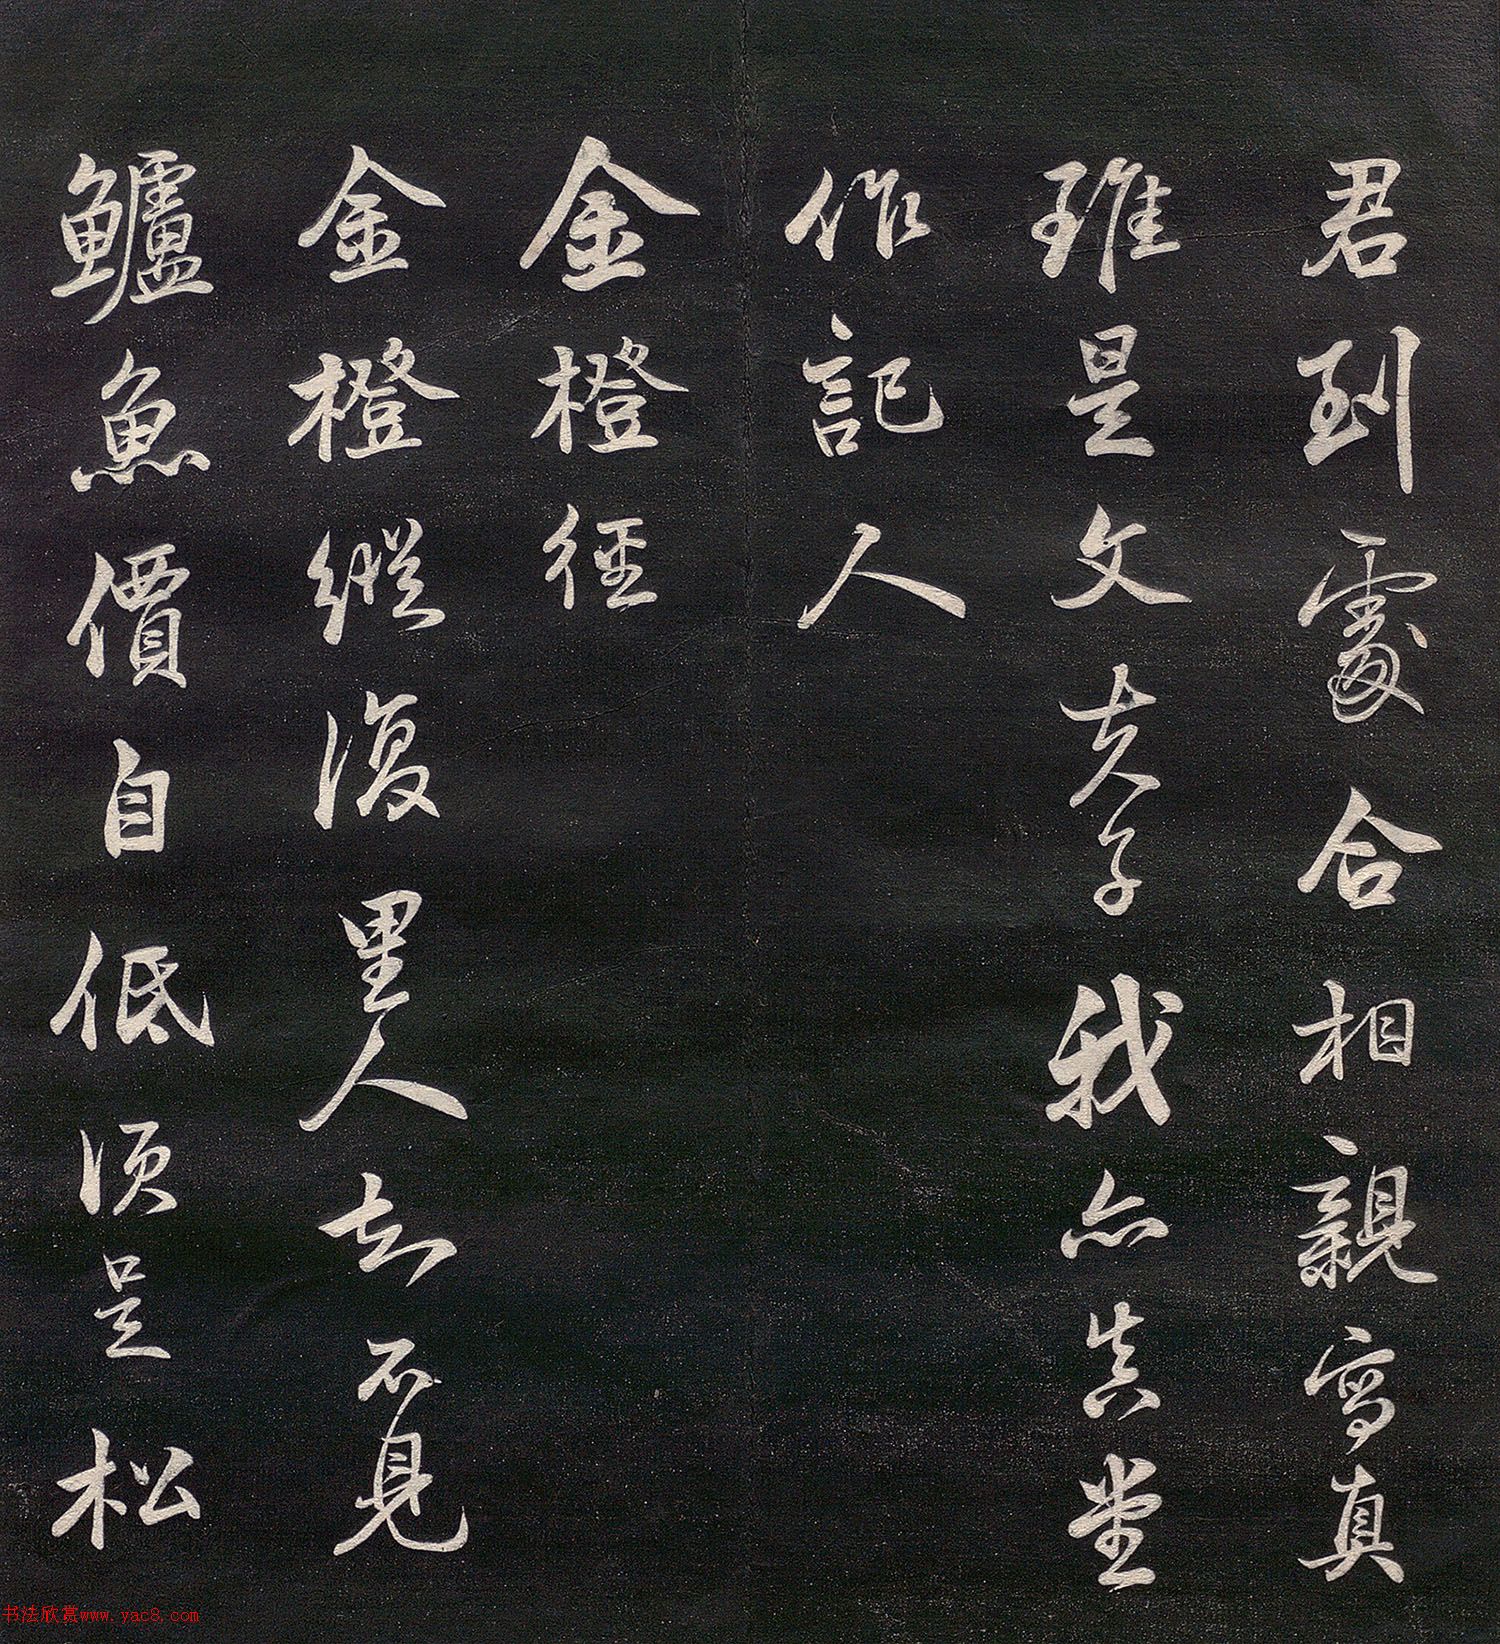 君到處合相親寫真
雖是文夫子我亦真堂
作記人
金橙徑
金橙縱復里人知不見
鱸魚價自低須是松
书法欣赏www.yac8.com